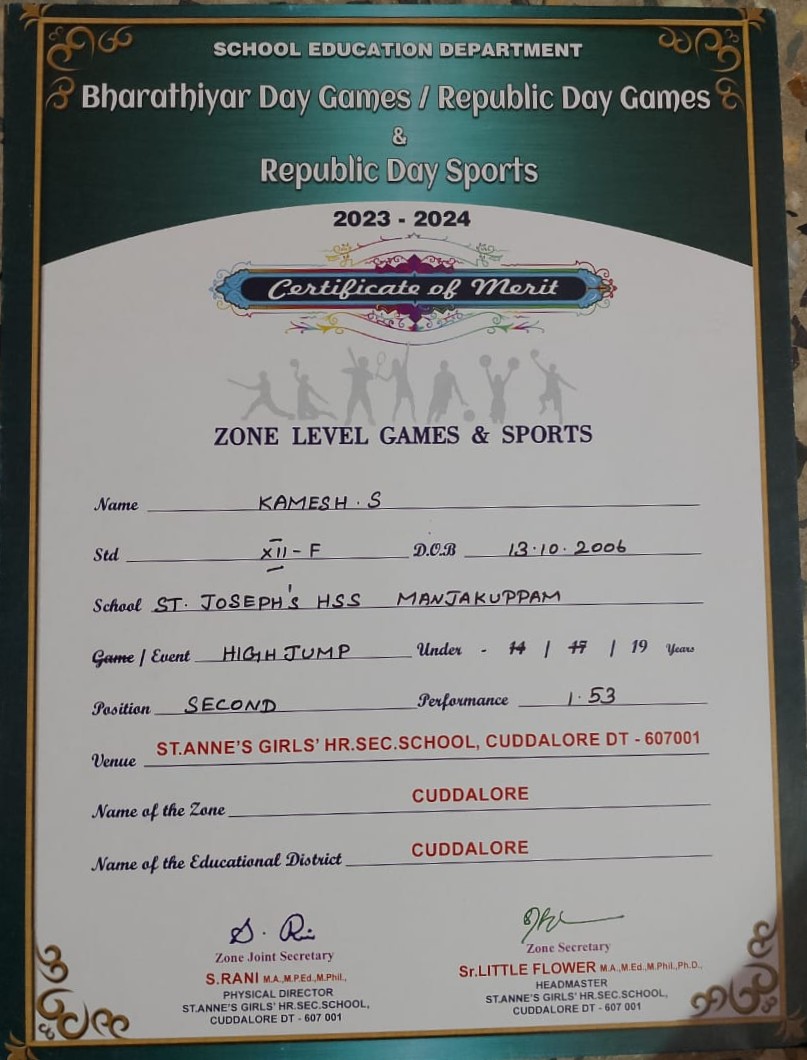 SCHOOL EDUCATION DEPARTMENT
Bharathiyar Day Games / Republic Day Games
&
Republic Day Sports
2023 - 2024
Certificate of Merit
ZONE LEVEL GAMES & SPORTS
Name KAMESH. S
Std XII - F D.O.B 13.10.2006
School ST. JOSEPH'S HSS MANJAKUPPAM
Game / Event HIGH JUMP Under - 14 / 17 / 19 Years
Position SECOND Performance 1.53
Venue ST.ANNE'S GIRLS' HR.SEC.SCHOOL, CUDDALORE DT - 607001
Name of the Zone CUDDALORE
Name of the Educational District CUDDALORE
Zone Joint Secretary
S.RANI M.A.,M.P.Ed.,M.Phil.,
PHYSICAL DIRECTOR
ST.ANNE'S GIRLS' HR.SEC.SCHOOL,
CUDDALORE DT - 607 001
Zone Secretary
Sr.LITTLE FLOWER M.A.,M.Ed.,M.Phil.,Ph.D.,
HEADMASTER
ST.ANNE'S GIRLS' HR.SEC.SCHOOL,
CUDDALORE DT - 607 001